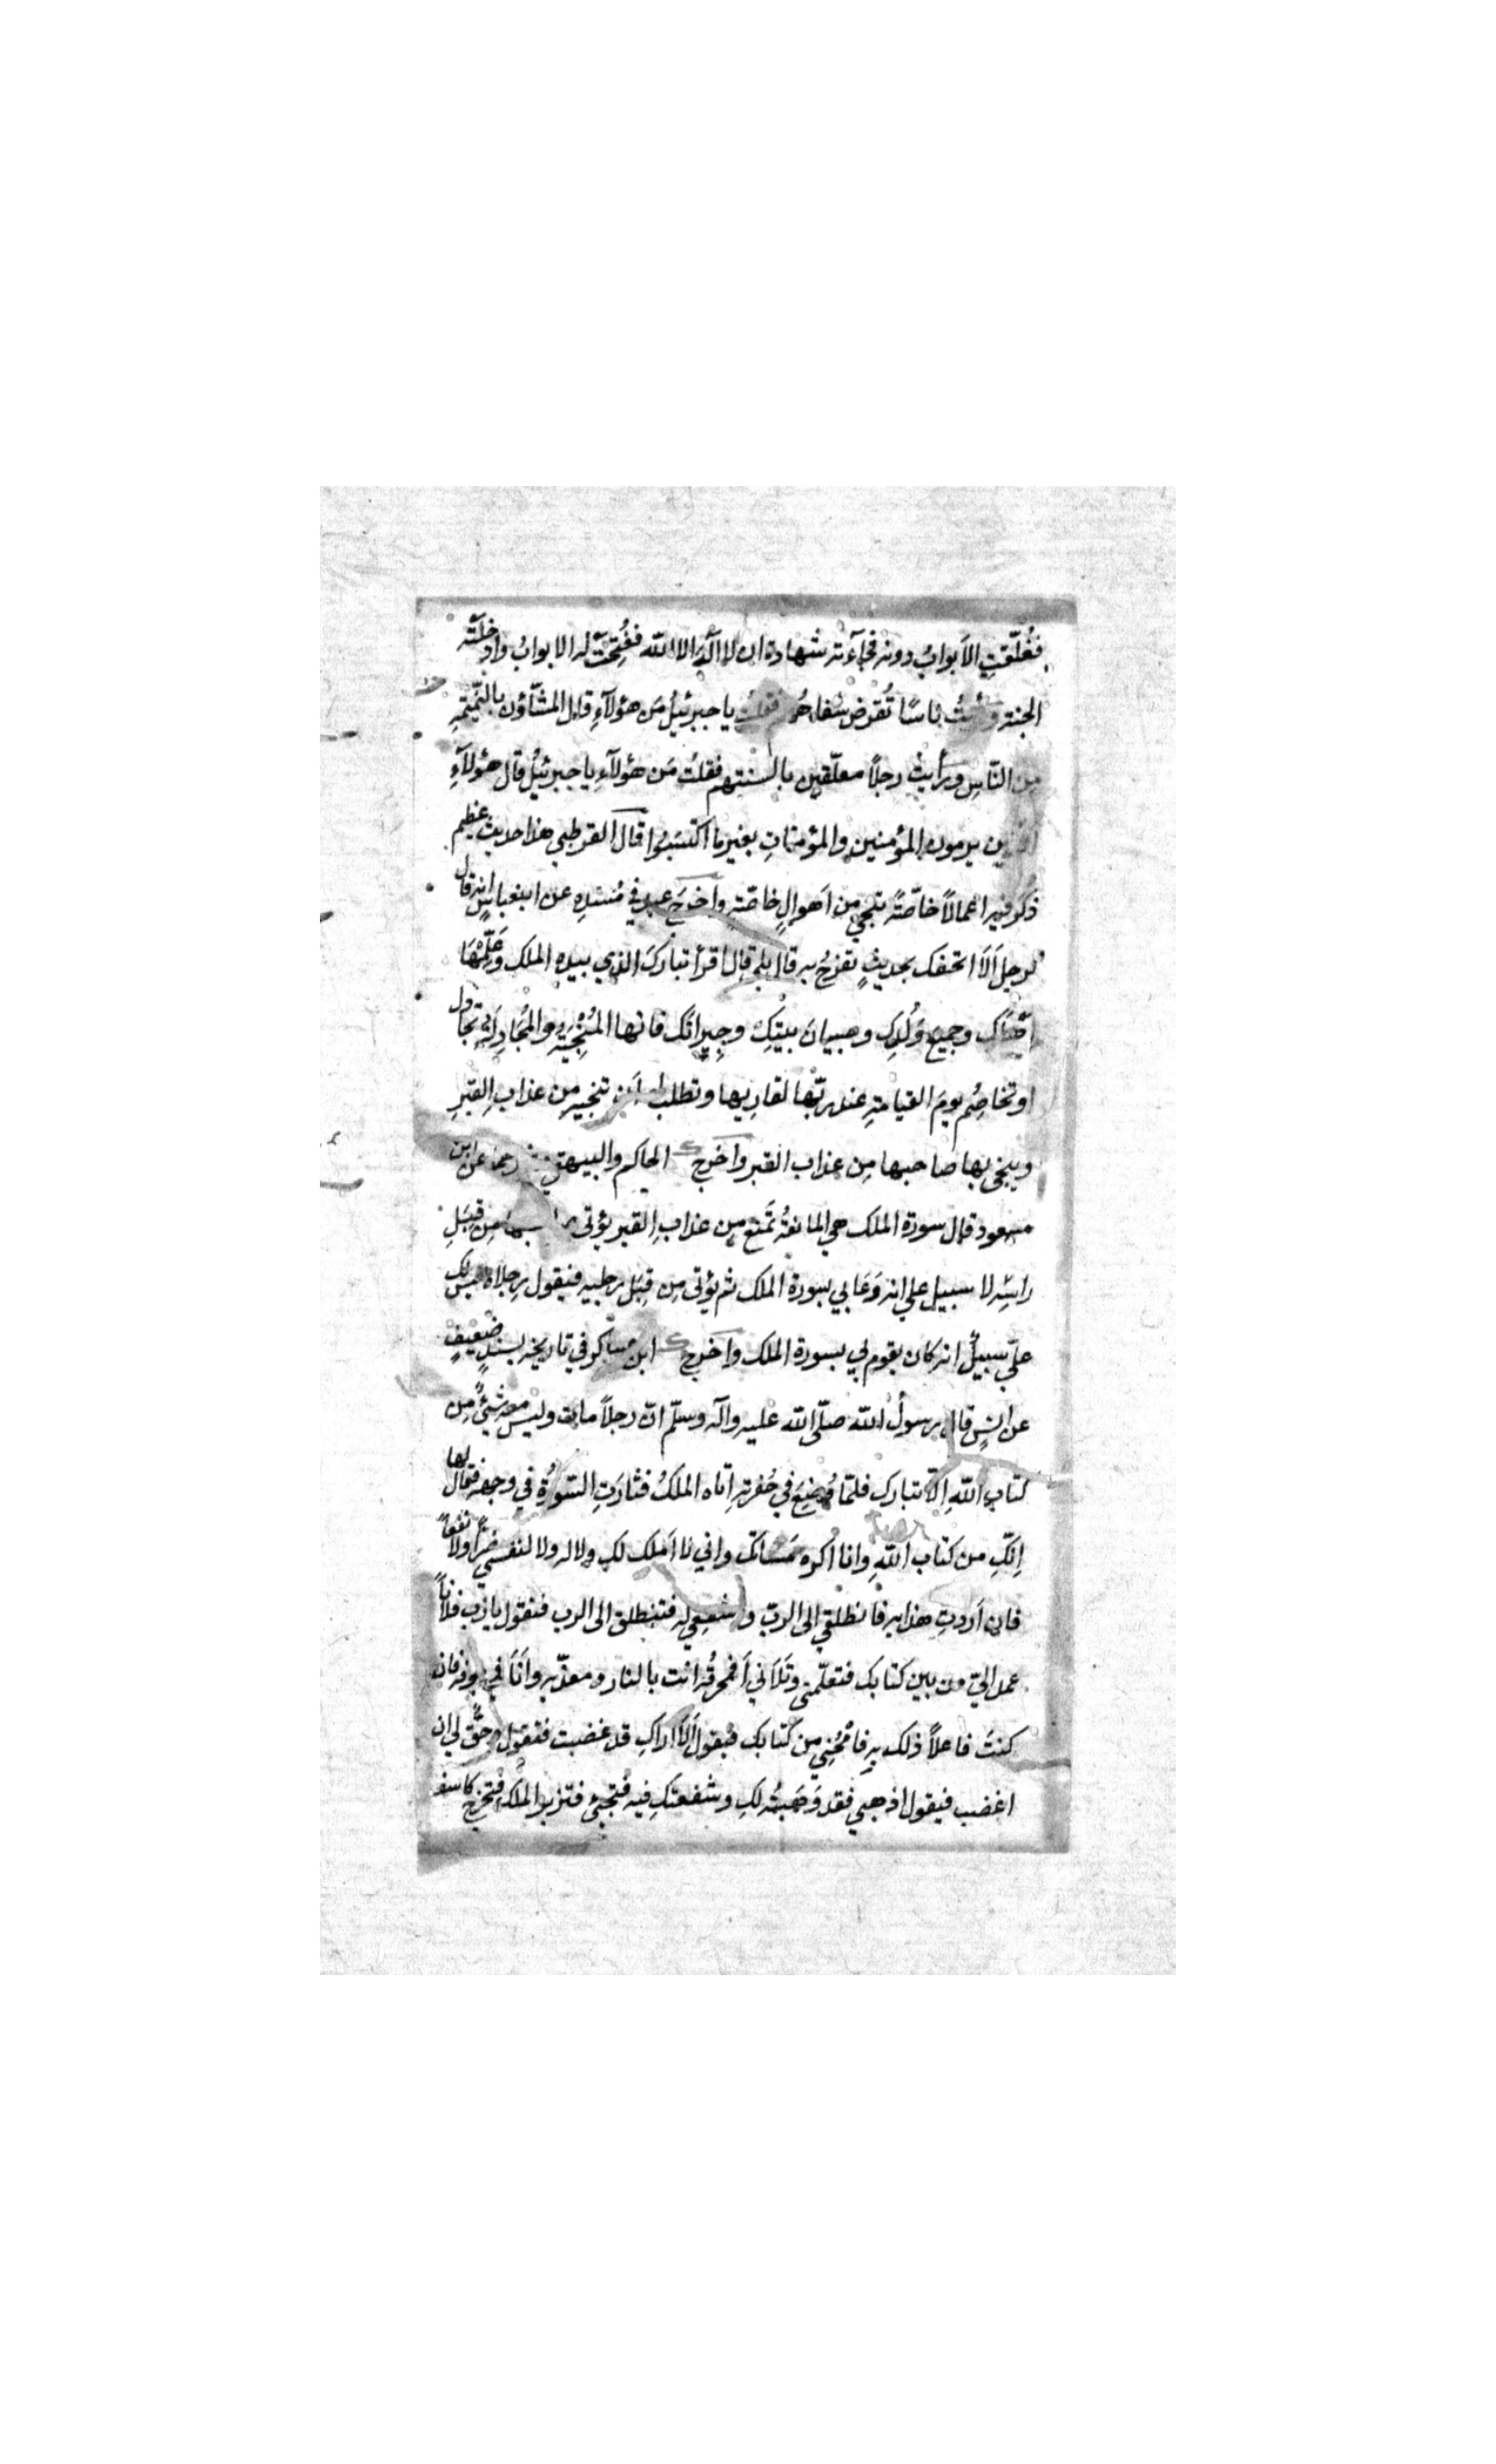 فغُلّقتِ الاَبوابُ دونه فجآءَته شهادة ان لا اله الا الله ففُتِحَتْ له الابوابُ وادخلته
الجنة ورأيتُ ناسًا تُقرض شفاههُم فقلتُ يا جبرئيلُ مَن هؤلآءِ قال المشّاؤن بالنّميمة
مِن النّاسِ ورأيتُ رجلاً معلّقين بالسنتهم فقلتُ مَن هؤلآءِ يا جبرئيلُ قال هؤلآءِ
الذين يرمون المؤمنين والمؤمناتِ بغيرما اكتسَبُوا قال القرطبي هذا حديث عظيم
ذَكرَ فيه اعمالاً خاصّةً تنجي من اَهوالٍ خاصّة واخرجَ عبد في مُسندِهِ عن ابنعباسٍ انه قال
لرجل اَلَا اتحفك بحديثٍ تفرحُ به قال بلى قال اقرأ تباركَ الذي بيدهِ الملك وعَلِّمْهَا
اهلك وجميعَ وُلْدِك وصبيانَ بيتِكَ وجيرانَك فانها المُنْجِيَةُ والمُجَادِلةُ تجادل
او تخاصِم يومَ القيامةِ عند ربّها لقاريها وتطلب له اَن تنجيه مِن عذابِ القبرِ
وينجى بها صاحبها مِن عذاب القبر واَخرج ك الحاكم والبيهقي عن ابن
مسعود قال سورة الملك هي المانعةُ تَمنع مِن عذابِ القبر يؤتى مِن قِبَلِ
راسِه لا سبيل علي انه وَعَا بي سورة الملك ثم يؤتى مِن قِبَل رجليه فيقول رجلاه ليس لك
عليّ سبيلٌ انه كان يقوم لي بسورة الملك واَخرج ك ابن عساكر في تاريخه بسندٍ ضعيفٍ
عن انسٍ قال رسولُ الله صلّى الله عليه وآله وسلّم انّ رجلاً مات وليس معه شئٌ مِن
كتابِ اللهِ اِلّا تبارك فلمّا وُضِعَ في حُفرتهِ اَتاه الملكُ فثارَتِ السّورةُ في وجهه فقال لها
اِنّكِ من كتاب اللهِ وانا اكره مَساتك واني لا اَملك لكِ ولا له ولا لنفسي ضرّاً ولا نفعاً
فان اَردتِ هذا به فانطلقي الى الربّ واشفعي له فتنطلق الى الرب فتقول يا رب فلاناً
عمد اليّ من بين كتابك فتعلّمني وتَلَاني اَفمحرقُه انت بالنار ومعذّبه واَنَا في جوفه فان
كنتَ فاعلاً ذلك بهِ فامْحُنِي مِن كتابك فيقول اَلَا اراكِ قد غضبت فتقول وحُقّ لي ان
اغضب فيقول اذهبي فقد وَهَبتُه لكِ وشفعتكِ فيه فتجئ فتزبر الملك فتخرج كاسف